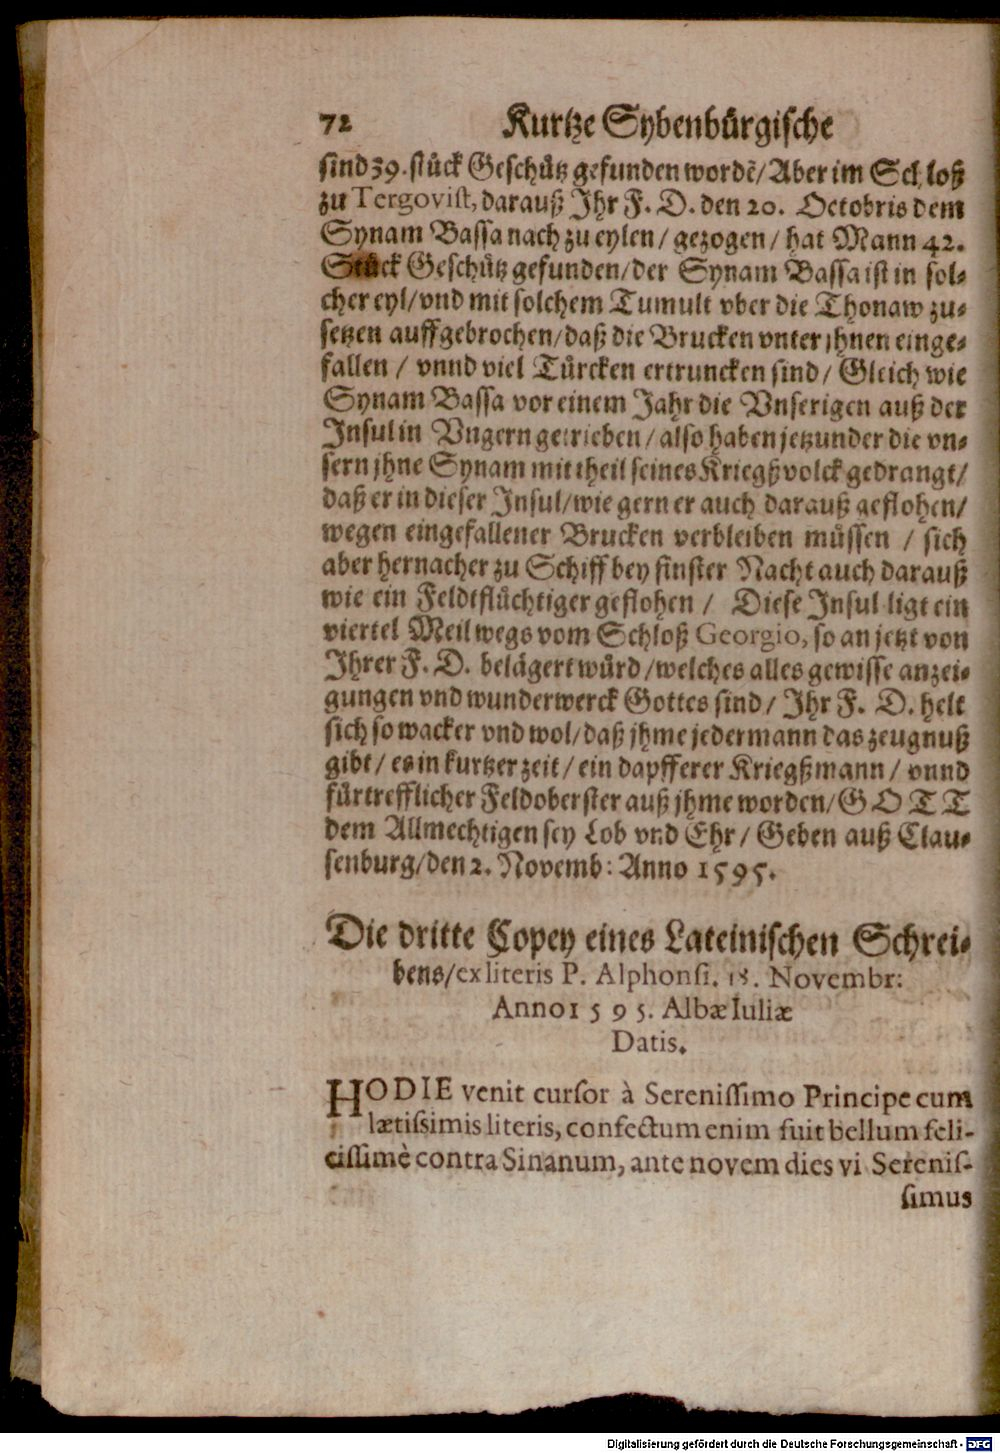 72 Kurtze Sybenbürgische
sind 39. stück Geschütz gefunden wordẽ/ Aber im Schloß
zu Tergovist, darauß Ihr F. D. den 20. Octobris dem
Synam Bassa nach zu eylen / gezogen / hat Mann 42.
Stück Geschütz gefunden/ der Synam Bassa ist in sol-
cher eyl/ vnd mit solchem Tumult vber die Thonaw zu-
setzen auffgebrochen/ daß die Brucken vnter jhnen einge-
fallen / vnnd viel Türcken ertruncken sind/ Gleich wie
Synam Bassa vor einem Jahr die Vnserigen auß der
Insul in Vngern getrieben / also haben jetzunder die vn-
sern jhne Synam mit theil seines Kriegßvolck gedrangt/
daß er in dieser Insul/ wie gern er auch darauß geflohen/
wegen eingefallener Brucken verbleiben müssen / sich
aber hernacher zu Schiff bey finster Nacht auch darauß
wie ein Feldtflüchtiger geflohen / Diese Insul ligt ein
viertel Meil wegs vom Schloß Georgio, so an jetzt von
Ihrer F. D. belägert würd / welches alles gewisse anzei-
gungen vnd wunderwerck Gottes sind/ Ihr F. D. helt
sich so wacker vnd wol/ daß jhme jedermann das zeugnuß
gibt / es in kurtzer zeit / ein dapfferer Kriegßmann / vnnd
fürtrefflicher Feldoberster auß jhme worden/ GOTT
dem Allmechtigen sey Lob vnd Ehr / Geben auß Clau-
senburg/ den 2. Novemb: Anno 1595.
Die dritte Copey eines Lateinischen Schrei-
bens/ ex literis P. Alphonsi. 18. Novembr:
Anno 1595. Albæ Iuliæ
Datis.
HODIE venit cursor à Serenissimo Principe cum
lætissimis literis, confectum enim fuit bellum feli-
cissimè contra Sinanum, ante novem dies vi Serenis-
simus
Digitalisierung gefördert durch die Deutsche Forschungsgemeinschaft - DFG